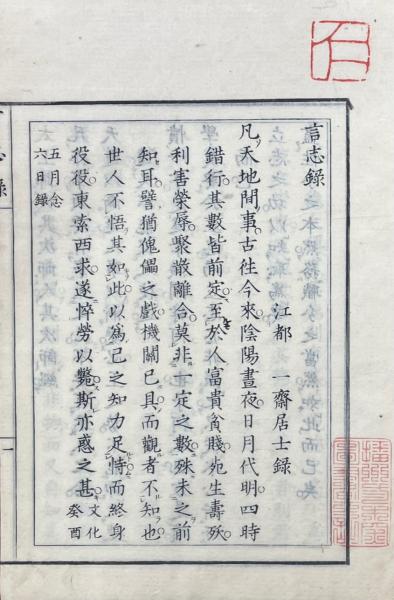 言志錄
江都　一齋居士錄
凡天地間事古往今來陰陽晝夜日月代明四時
錯行其數皆前定至於人富貴貧賤死生壽殀
利害榮辱聚散離合莫非一定之數殊未之前
知耳譬猶傀儡之戲機關已具而觀者不知也
世人不悟其如此以爲己之知力足恃而終身
役役東索西求遂悴勞以斃斯亦惑之甚
文化
癸酉
五月念
六日錄